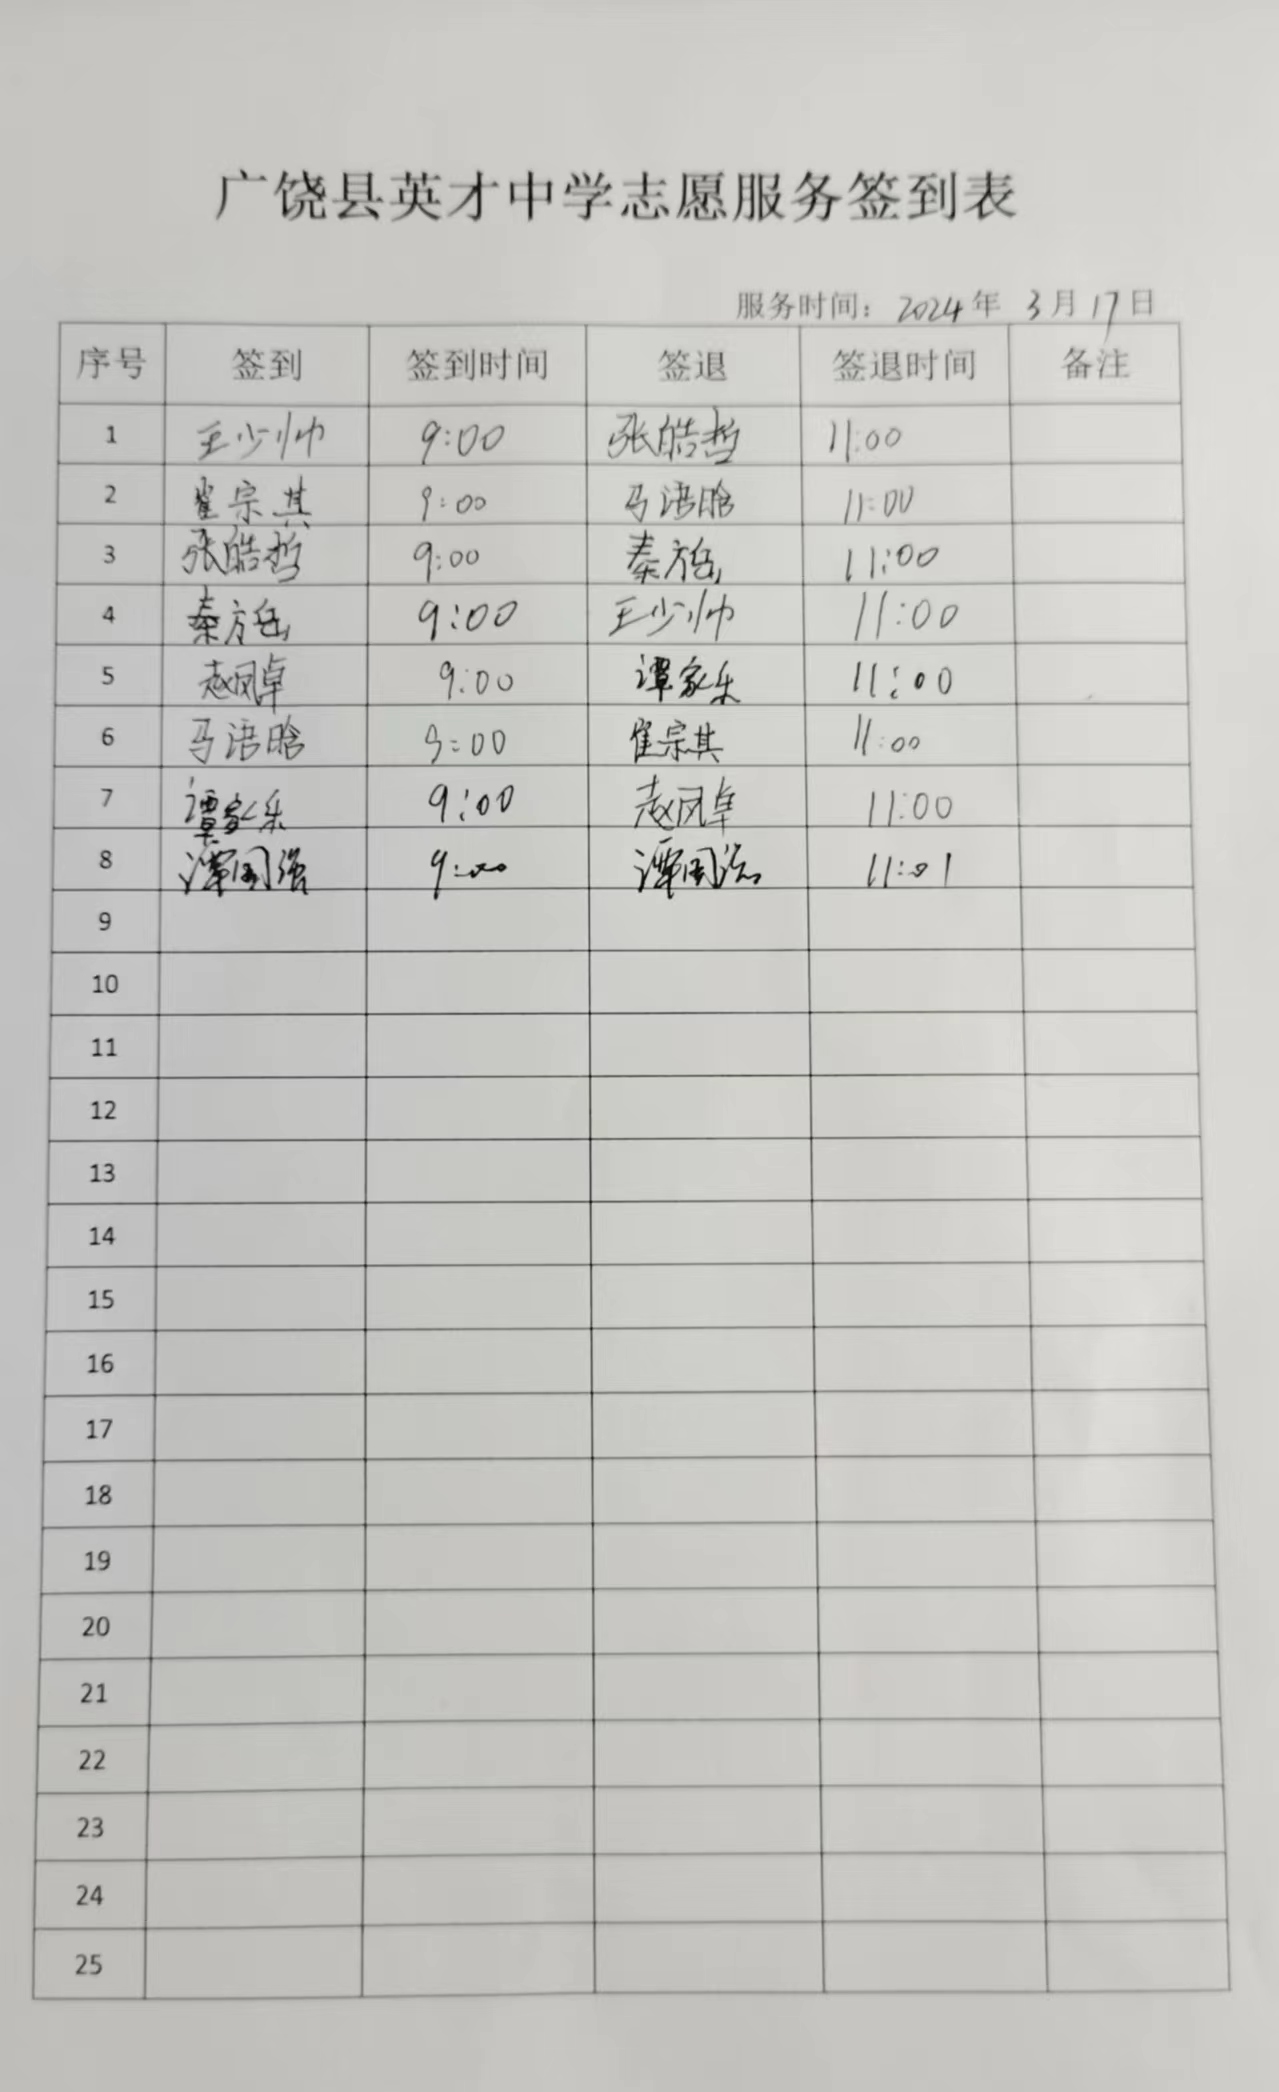 广饶县英才中学志愿服务签到表
服务时间：2024年 3月17日
序号 签到 签到时间 签退 签退时间 备注
1 王少帅 9:00 张皓哲 11:00
2 崔宗其 9:00 马浯晗 11:00
3 张皓哲 9:00 秦方岳 11:00
4 秦方岳 9:00 王少帅 11:00
5 赵凤卓 9:00 谭家乐 11:00
6 马浯晗 9:00 崔宗其 11:00
7 谭家乐 9:00 赵凤卓 11:00
8 9:00 11:01
9
10
11
12
13
14
15
16
17
18
19
20
21
22
23
24
25